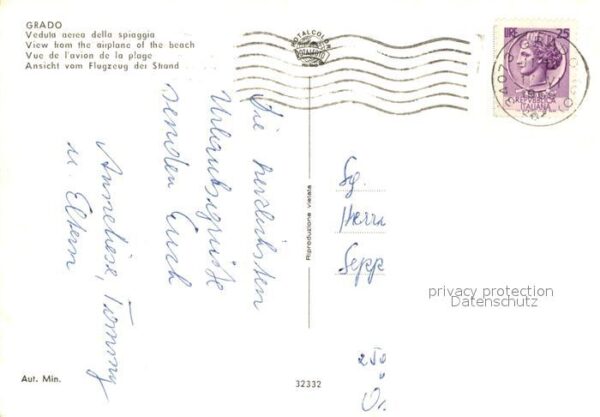 GRADO
Veduta aerea della spiaggia
View from the airplane of the beach
Vue de l'avion de la plage
Ansicht vom Flugzeug der Strand
ROTALCOLOR
LIRE 25
REPVBBLICA
ITALIANA
Die herzlichsten
Urlaubsgrüße
senden Euch
Anneliese, Tommy
u. Eltern
Riproduzione vietata
Sg.
Herrn
Sepp
privacy protection
Datenschutz
Aut. Min.
32332